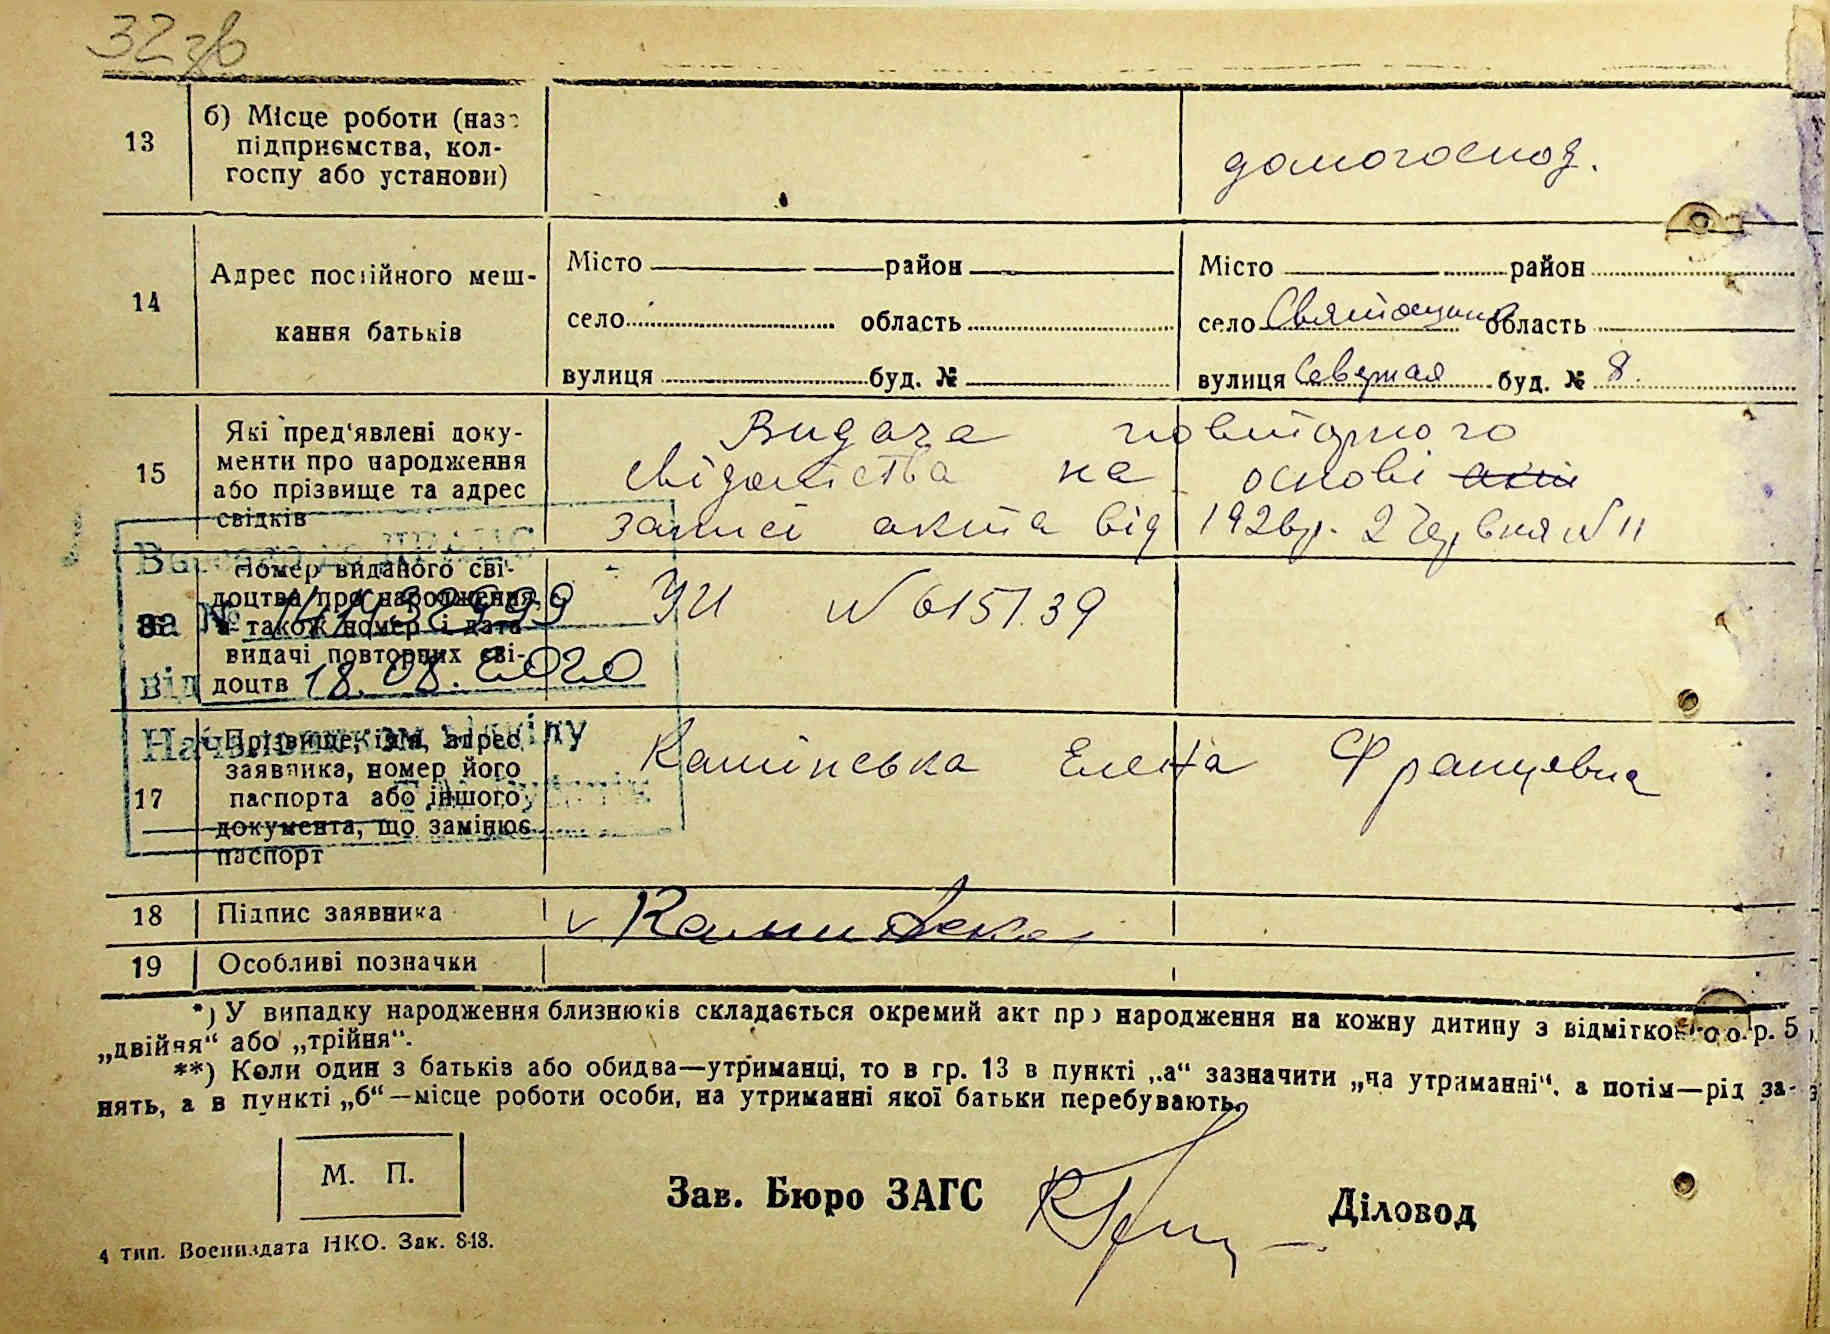 32 зв
13 б) Місце роботи (назва
підприємства, кол-
госпу або установи)
домогоспод.
14 Адрес постійного меш-
кання батьків
Місто район
село область
вулиця буд. №
Місто район
село Святошино область
вулиця Северная буд. № 8.
15 Які пред'явлені доку-
менти про народження
або прізвище та адрес
свідків
Видача повторного
свідоцтва на основі акт
записі акта від 1926 р. 2 червня № 11
Номер виданого сві-
доцтва про народження
а також номер і дата
видачі повторних сві-
доцтв
УИ № 615139
за №
від 18.08.2020
Начальник відділу
17 Прізвище, ім'я, адрес
заявника, номер його
паспорта або іншого
документа, що замінює
паспорт
Камінська Елена Францевна
18 Підпис заявника
v Каминская
19 Особливі позначки
*) У випадку народження близнюків складається окремий акт про народження на кожну дитину з відміткою о гр. 5
„двійня“ або „трійня“.
**) Коли один з батьків або обидва—утриманці, то в гр. 13 в пункті „а“ зазначити „на утриманні“, а потім—рід за-
нять, а в пункті „б“—місце роботи особи, на утриманні якої батьки перебувають.
М. П.
Зав. Бюро ЗАГС
Діловод
4 тип. Воениздата НКО. Зак. 818.